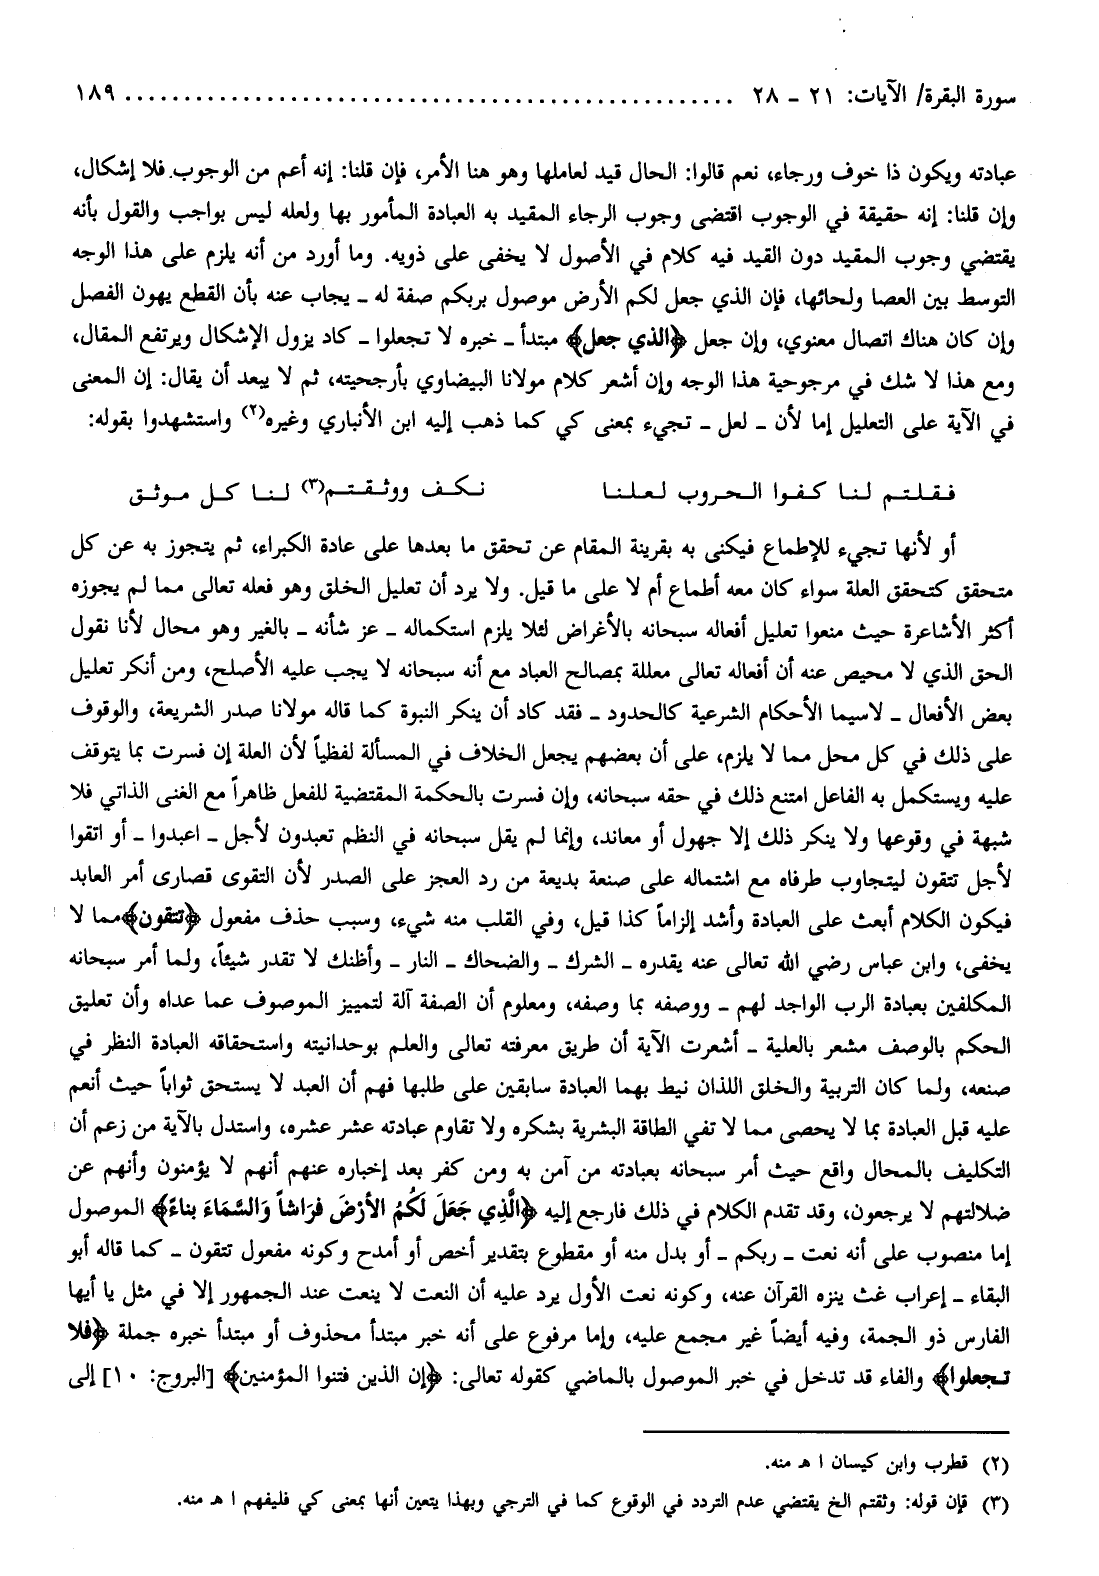 سورة البقرة/ الآيات: ٢١ - ٢٨ ................................................ ١٨٩
عبادته ويكون ذا خوف ورجاء، نعم قالوا: الحال قيد لعاملها وهو هنا الأمر، فإن قلنا: إنه أعم من الوجوب فلا إشكال،
وإن قلنا: إنه حقيقة في الوجوب اقتضى وجوب الرجاء المقيد به العبادة المأمور بها ولعله ليس بواجب والقول بأنه
يقتضي وجوب المقيد دون القيد فيه كلام في الأصول لا يخفى على ذويه. وما أورد من أنه يلزم على هذا الوجه
التوسط بين العصا ولحائها، فإن الذي جعل لكم الأرض موصول بربكم صفة له ـ يجاب عنه بأن القطع يهون الفصل
وإن كان هناك اتصال معنوي، وإن جعل ﴿الذي جعل﴾ مبتدأ ـ خبره لا تجعلوا ـ كاد يزول الإشكال ويرتفع المقال،
ومع هذا لا شك في مرجوحية هذا الوجه وإن أشعر كلام مولانا البيضاوي بأرجحيته، ثم لا يبعد أن يقال: إن المعنى
في الآية على التعليل إما لأن ـ لعل ـ تجيء بمعنى كي كما ذهب إليه ابن الأنباري وغيره(٢) واستشهدوا بقوله:
فقلتم لنا كفوا الحروب لعلنا نكف ووثقتم(٣) لنا كل موثق
أو لأنها تجيء للإطماع فيكنى به بقرينة المقام عن تحقق ما بعدها على عادة الكبراء، ثم يتجوز به عن كل
متحقق كتحقق العلة سواء كان معه أطماع أم لا على ما قيل. ولا يرد أن تعليل الخلق وهو فعله تعالى مما لم يجوزه
أكثر الأشاعرة حيث منعوا تعليل أفعاله سبحانه بالأغراض لئلا يلزم استكماله ـ عز شأنه ـ بالغير وهو محال لأنا نقول
الحق الذي لا محيص عنه أن أفعاله تعالى معللة بمصالح العباد مع أنه سبحانه لا يجب عليه الأصلح، ومن أنكر تعليل
بعض الأفعال ـ لاسيما الأحكام الشرعية كالحدود ـ فقد كاد أن ينكر النبوة كما قاله مولانا صدر الشريعة، والوقوف
على ذلك في كل محل مما لا يلزم، على أن بعضهم يجعل الخلاف في المسألة لفظياً لأن العلة إن فسرت بما يتوقف
عليه ويستكمل به الفاعل امتنع ذلك في حقه سبحانه، وإن فسرت بالحكمة المقتضية للفعل ظاهراً مع الغنى الذاتي فلا
شبهة في وقوعها ولا ينكر ذلك إلا جهول أو معاند، وإنما لم يقل سبحانه في النظم تعبدون لأجل ـ اعبدوا ـ أو اتقوا
لأجل تتقون ليتجاوب طرفاه مع اشتماله على صنعة بديعة من رد العجز على الصدر لأن التقوى قصارى أمر العابد
فيكون الكلام أبعث على العبادة وأشد إلزاماً كذا قيل، وفي القلب منه شيء، وسبب حذف مفعول ﴿تتقون﴾مما لا
يخفى، وابن عباس رضي الله تعالى عنه يقدره ـ الشرك ـ والضحاك ـ النار ـ وأظنك لا تقدر شيئاً، ولما أمر سبحانه
المكلفين بعبادة الرب الواجد لهم ـ ووصفه بما وصفه، ومعلوم أن الصفة آلة لتمييز الموصوف عما عداه وأن تعليق
الحكم بالوصف مشعر بالعلية ـ أشعرت الآية أن طريق معرفته تعالى والعلم بوحدانيته واستحقاقه العبادة النظر في
صنعه، ولما كان التربية والخلق اللذان نيط بهما العبادة سابقين على طلبها فهم أن العبد لا يستحق ثواباً حيث أنعم
عليه قبل العبادة بما لا يحصى مما لا تفي الطاقة البشرية بشكره ولا تقاوم عبادته عشر عشره، واستدل بالآية من زعم أن
التكليف بالمحال واقع حيث أمر سبحانه بعبادته من آمن به ومن كفر بعد إخباره عنهم أنهم لا يؤمنون وأنهم عن
ضلالتهم لا يرجعون، وقد تقدم الكلام في ذلك فارجع إليه ﴿الَّذِي جَعَلَ لَكُمُ الأَرْضَ فِرَاشاً وَالسَّمَاءَ بِنَاءً﴾ الموصول
إما منصوب على أنه نعت ـ ربكم ـ أو بدل منه أو مقطوع بتقدير أخص أو أمدح وكونه مفعول تتقون ـ كما قاله أبو
البقاء ـ إعراب غث ينزه القرآن عنه، وكونه نعت الأول يرد عليه أن النعت لا ينعت عند الجمهور إلا في مثل يا أيها
الفارس ذو الجمة، وفيه أيضاً غير مجمع عليه، وإما مرفوع على أنه خبر مبتدأ محذوف أو مبتدأ خبره جملة ﴿فلا
تجعلوا﴾ والفاء قد تدخل في خبر الموصول بالماضي كقوله تعالى: ﴿إن الذين فتنوا المؤمنين﴾ [البروج: ١٠] إلى
(٢) قطرب وابن كيسان ا هـ منه.
(٣) فإن قوله: وثقتم الخ يقتضي عدم التردد في الوقوع كما في الترجي وبهذا يتعين أنها بمعنى كي فليفهم ا هـ منه.